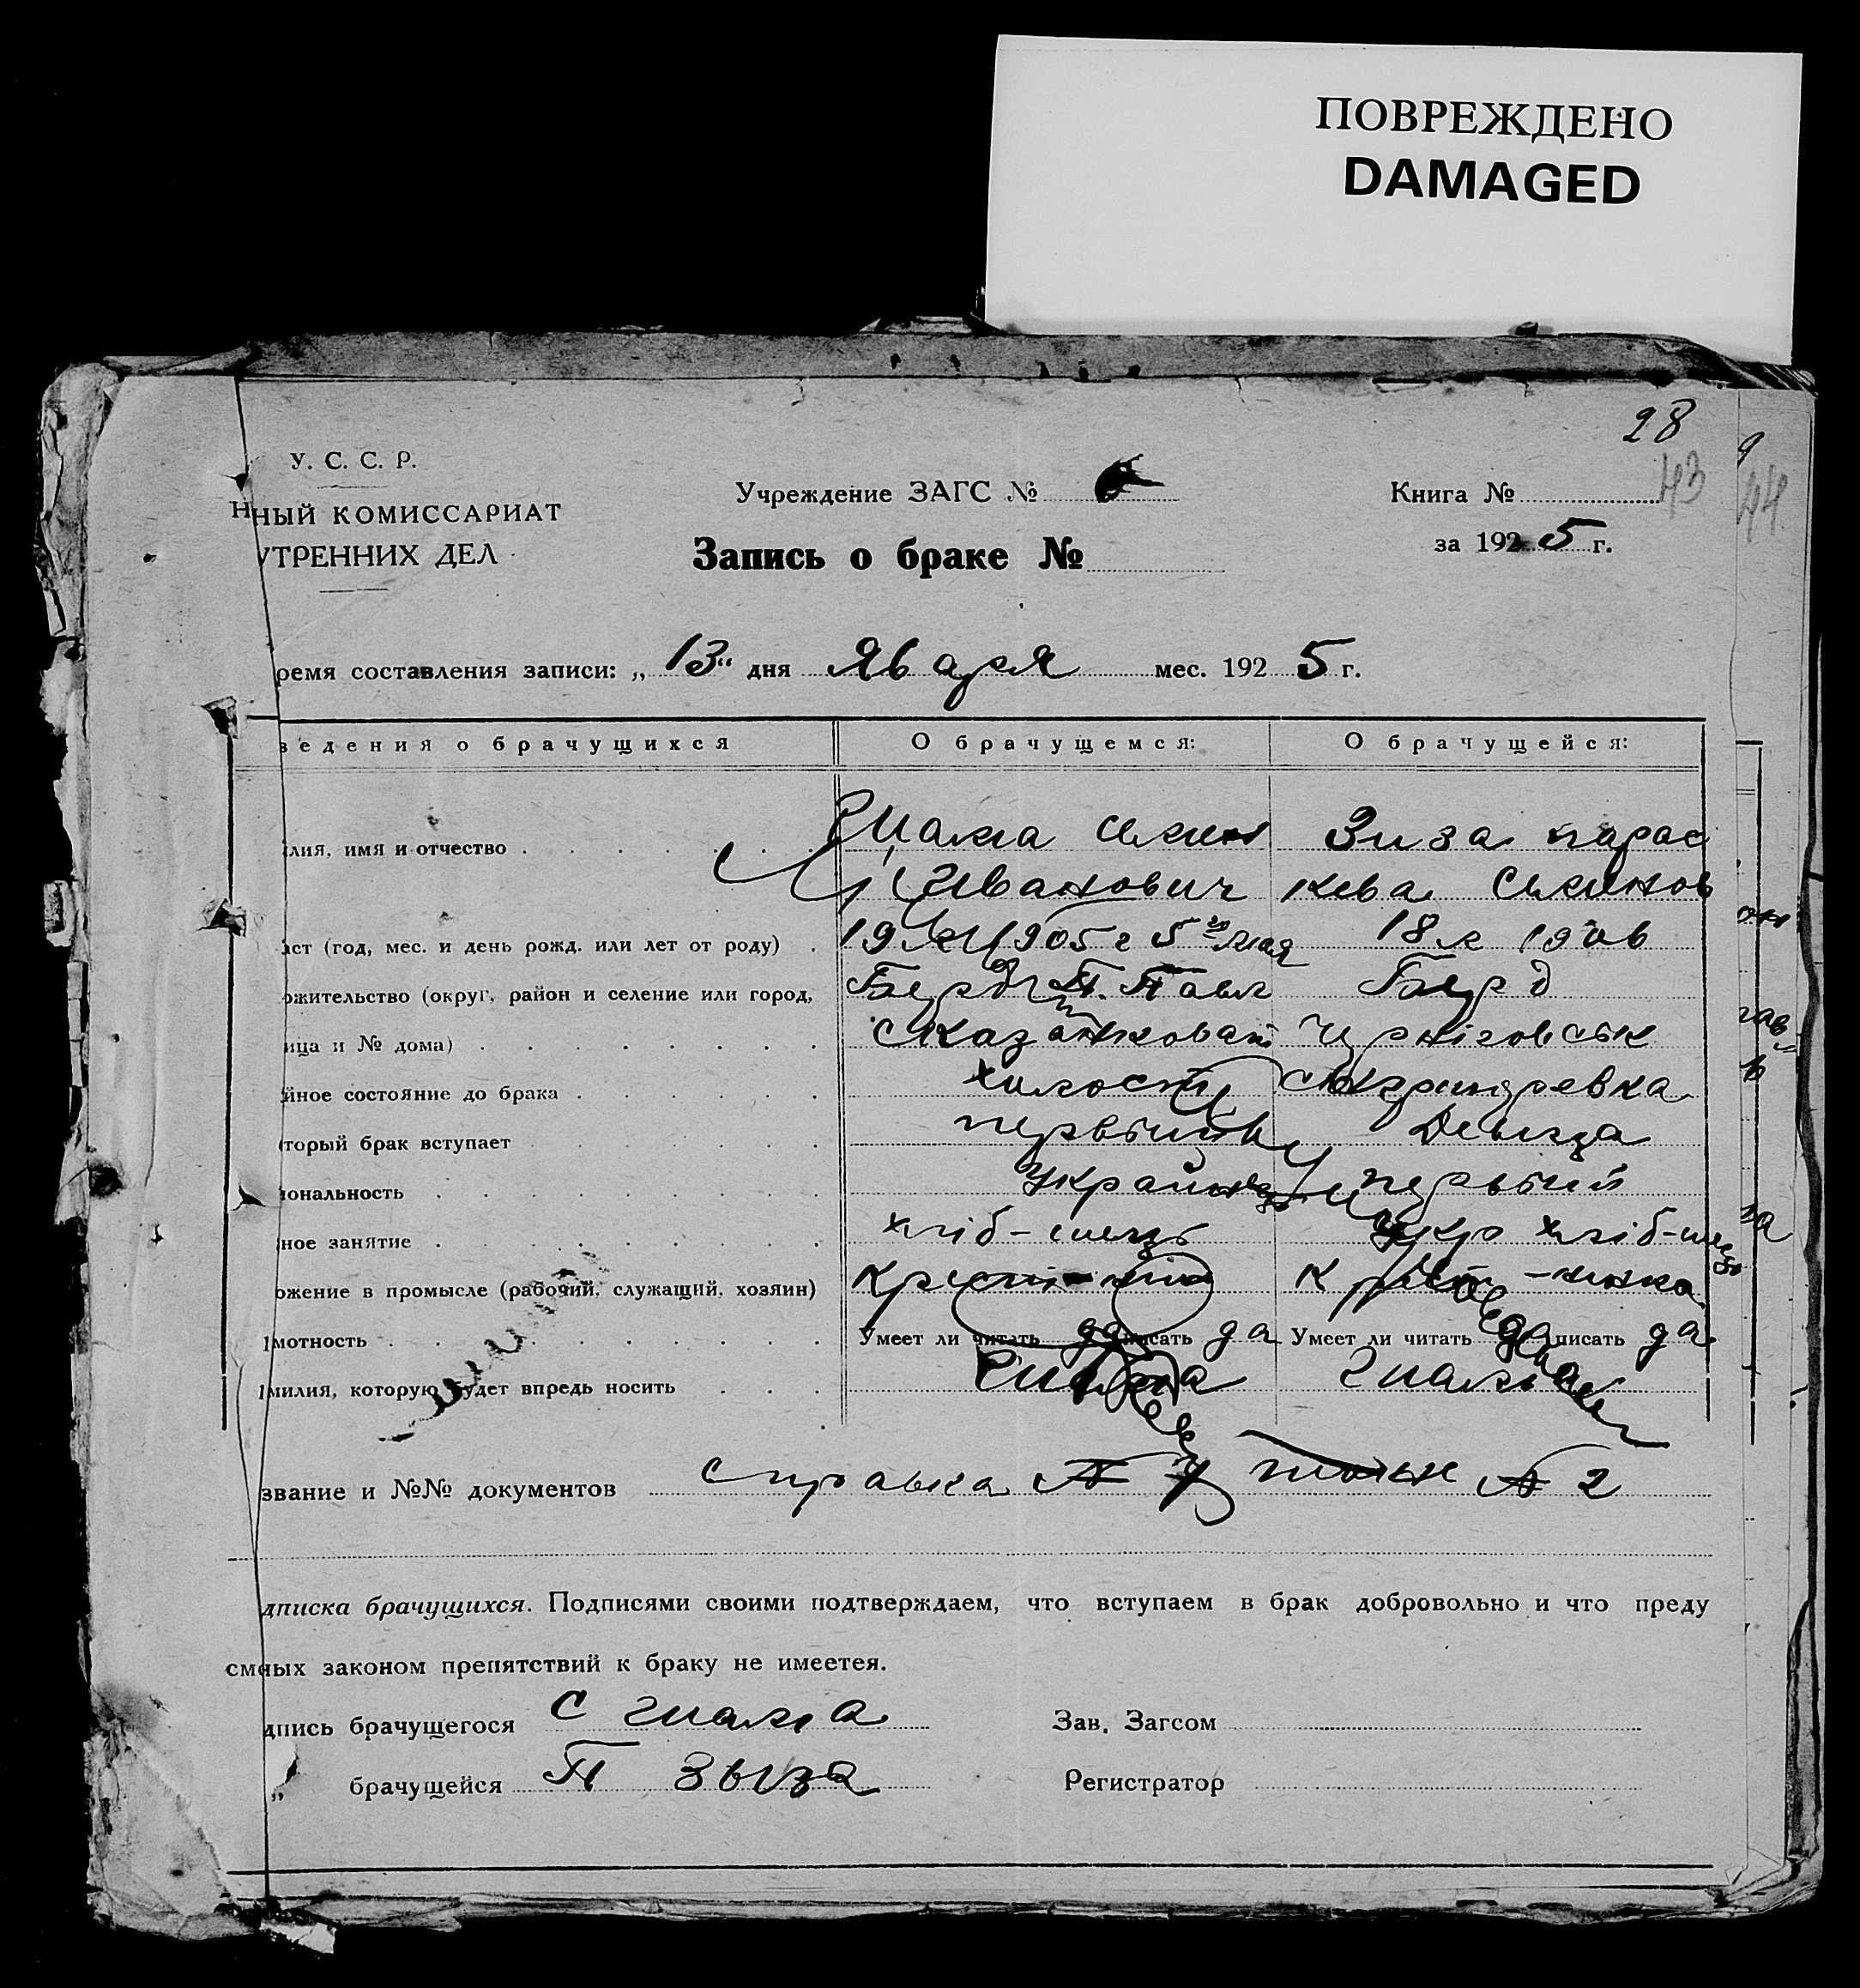 ПОВРЕЖДЕНО
DAMAGED
28
43
44
У. С. С. Р.
НЫЙ КОМИССАРИАТ
УТРЕННИХ ДЕЛ
Учреждение ЗАГС №
Книга №
за 1925 г.
Запись о браке №
ремя составления записи: „ 13 “ дня Января мес. 1925 г.
ведения о брачущихся О брачущемся: О брачущейся:
лия, имя и отчество Семен Зиза Парас
Иванович кева Семинов
аст (год, мес. и день рожд. или лет от роду) 19 л 1905 г 5го мая 18 л 1906
ожительство (округ, район и селение или город, Берд П. Павл Берд
ица и № дома) Черніговськ
йное состояние до брака холост
торый брак вступает первый Девица
иональность Украинец первый
ное занятие хліб-шець Укр хліб-
ожение в промысле (рабочий, служащий, хозяин)
мотность Умеет ли читать да писать да Умеет ли читать да писать да
милия, которую будет впредь носить Гиама Гиама
звание и №№ документов справка № 2
дписка брачущихся. Подписями своими подтверждаем, что вступаем в брак добровольно и что преду
смных законом препятствий к браку не имеетея.
дпись брачущегося С Гиама Зав. Загсом
„ брачущейся П Зыза Регистратор